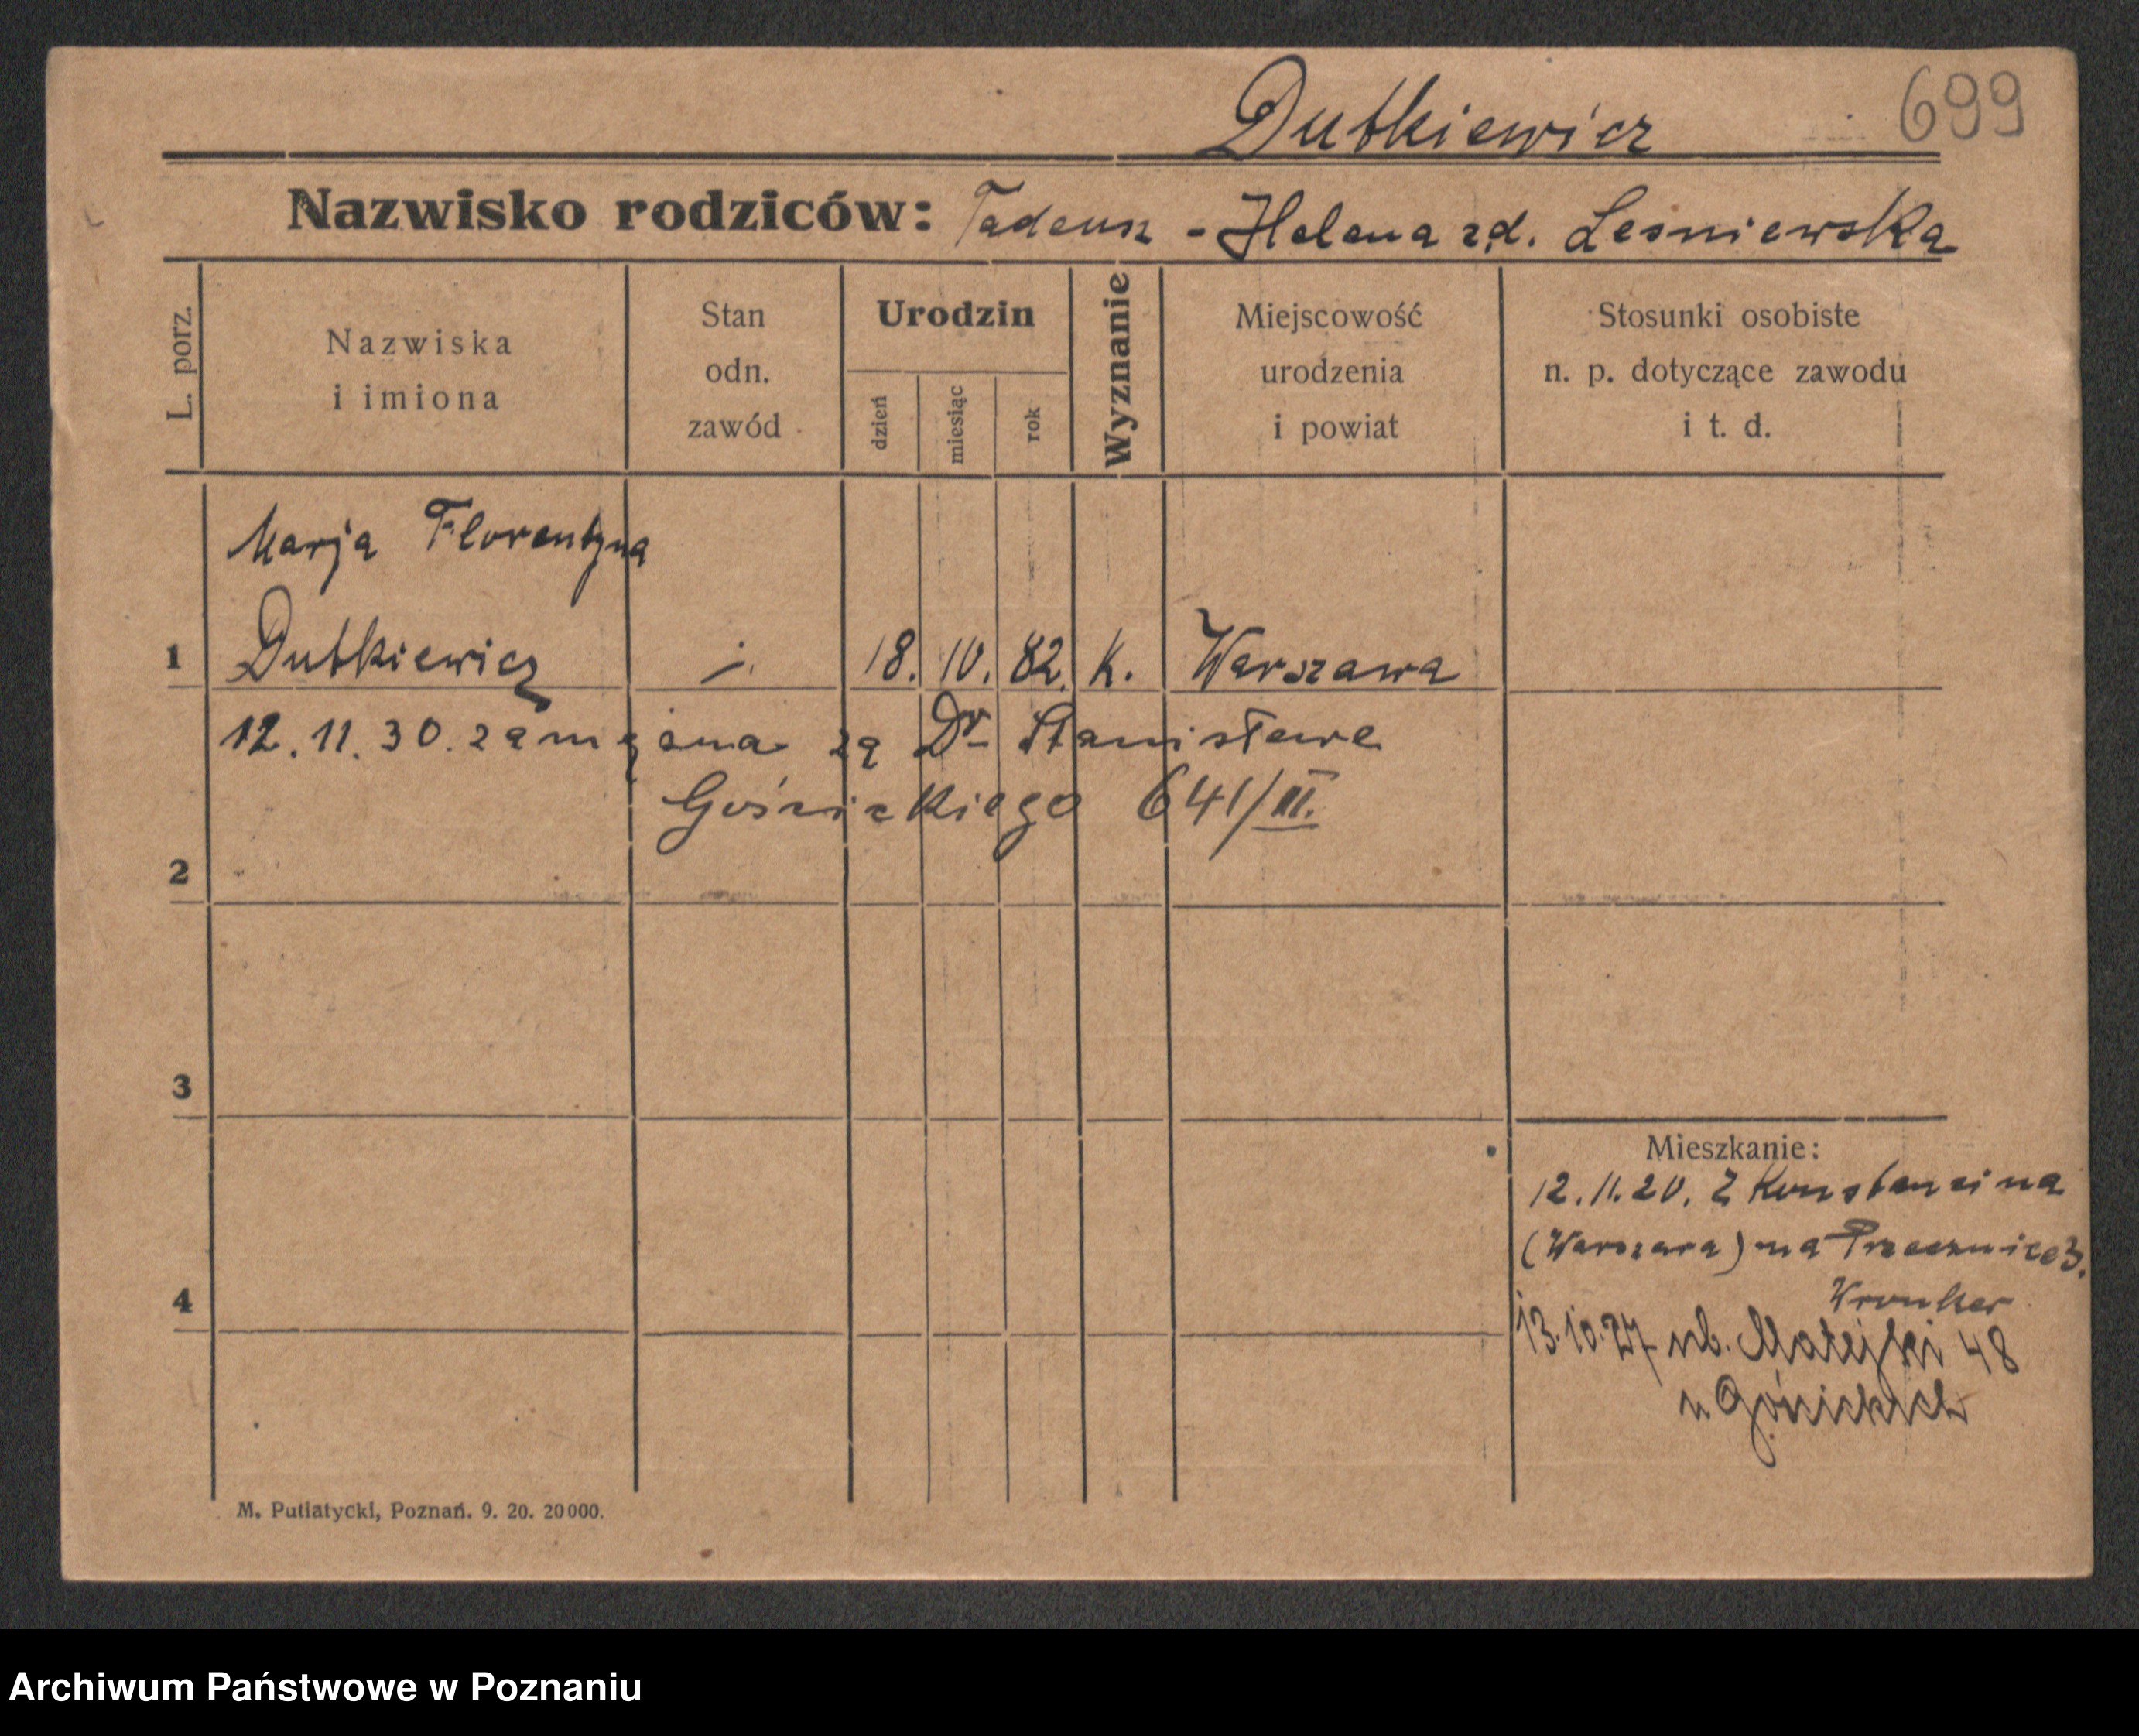 Dutkiewicz 699
Nazwisko rodziców: Tadeusz - Helena zd. Leśniewska
L. porz.
Nazwiska
i imiona
Stan
odn.
zawód
Urodzin
dzień
miesiąc
rok
Wyznanie
Miejscowość
urodzenia
i powiat
Stosunki osobiste
n. p. dotyczące zawodu
i t. d.
Marja Florentyna
1 Dutkiewicz j. 18. 10. 82. k. Warszawa
12. 11. 30. zamężna za Dr Stanisława
Gościckiego 641/III.
2
3
Mieszkanie:
12. 11. 20. Z Konstancina
(Warszawa) na Przecznice 3.
Wronker
4
13. 10. 27 ul. Matejki 48
u Gościckich
M. Putiatycki, Poznań. 9. 20. 20000.
Archiwum Państwowe w Poznaniu